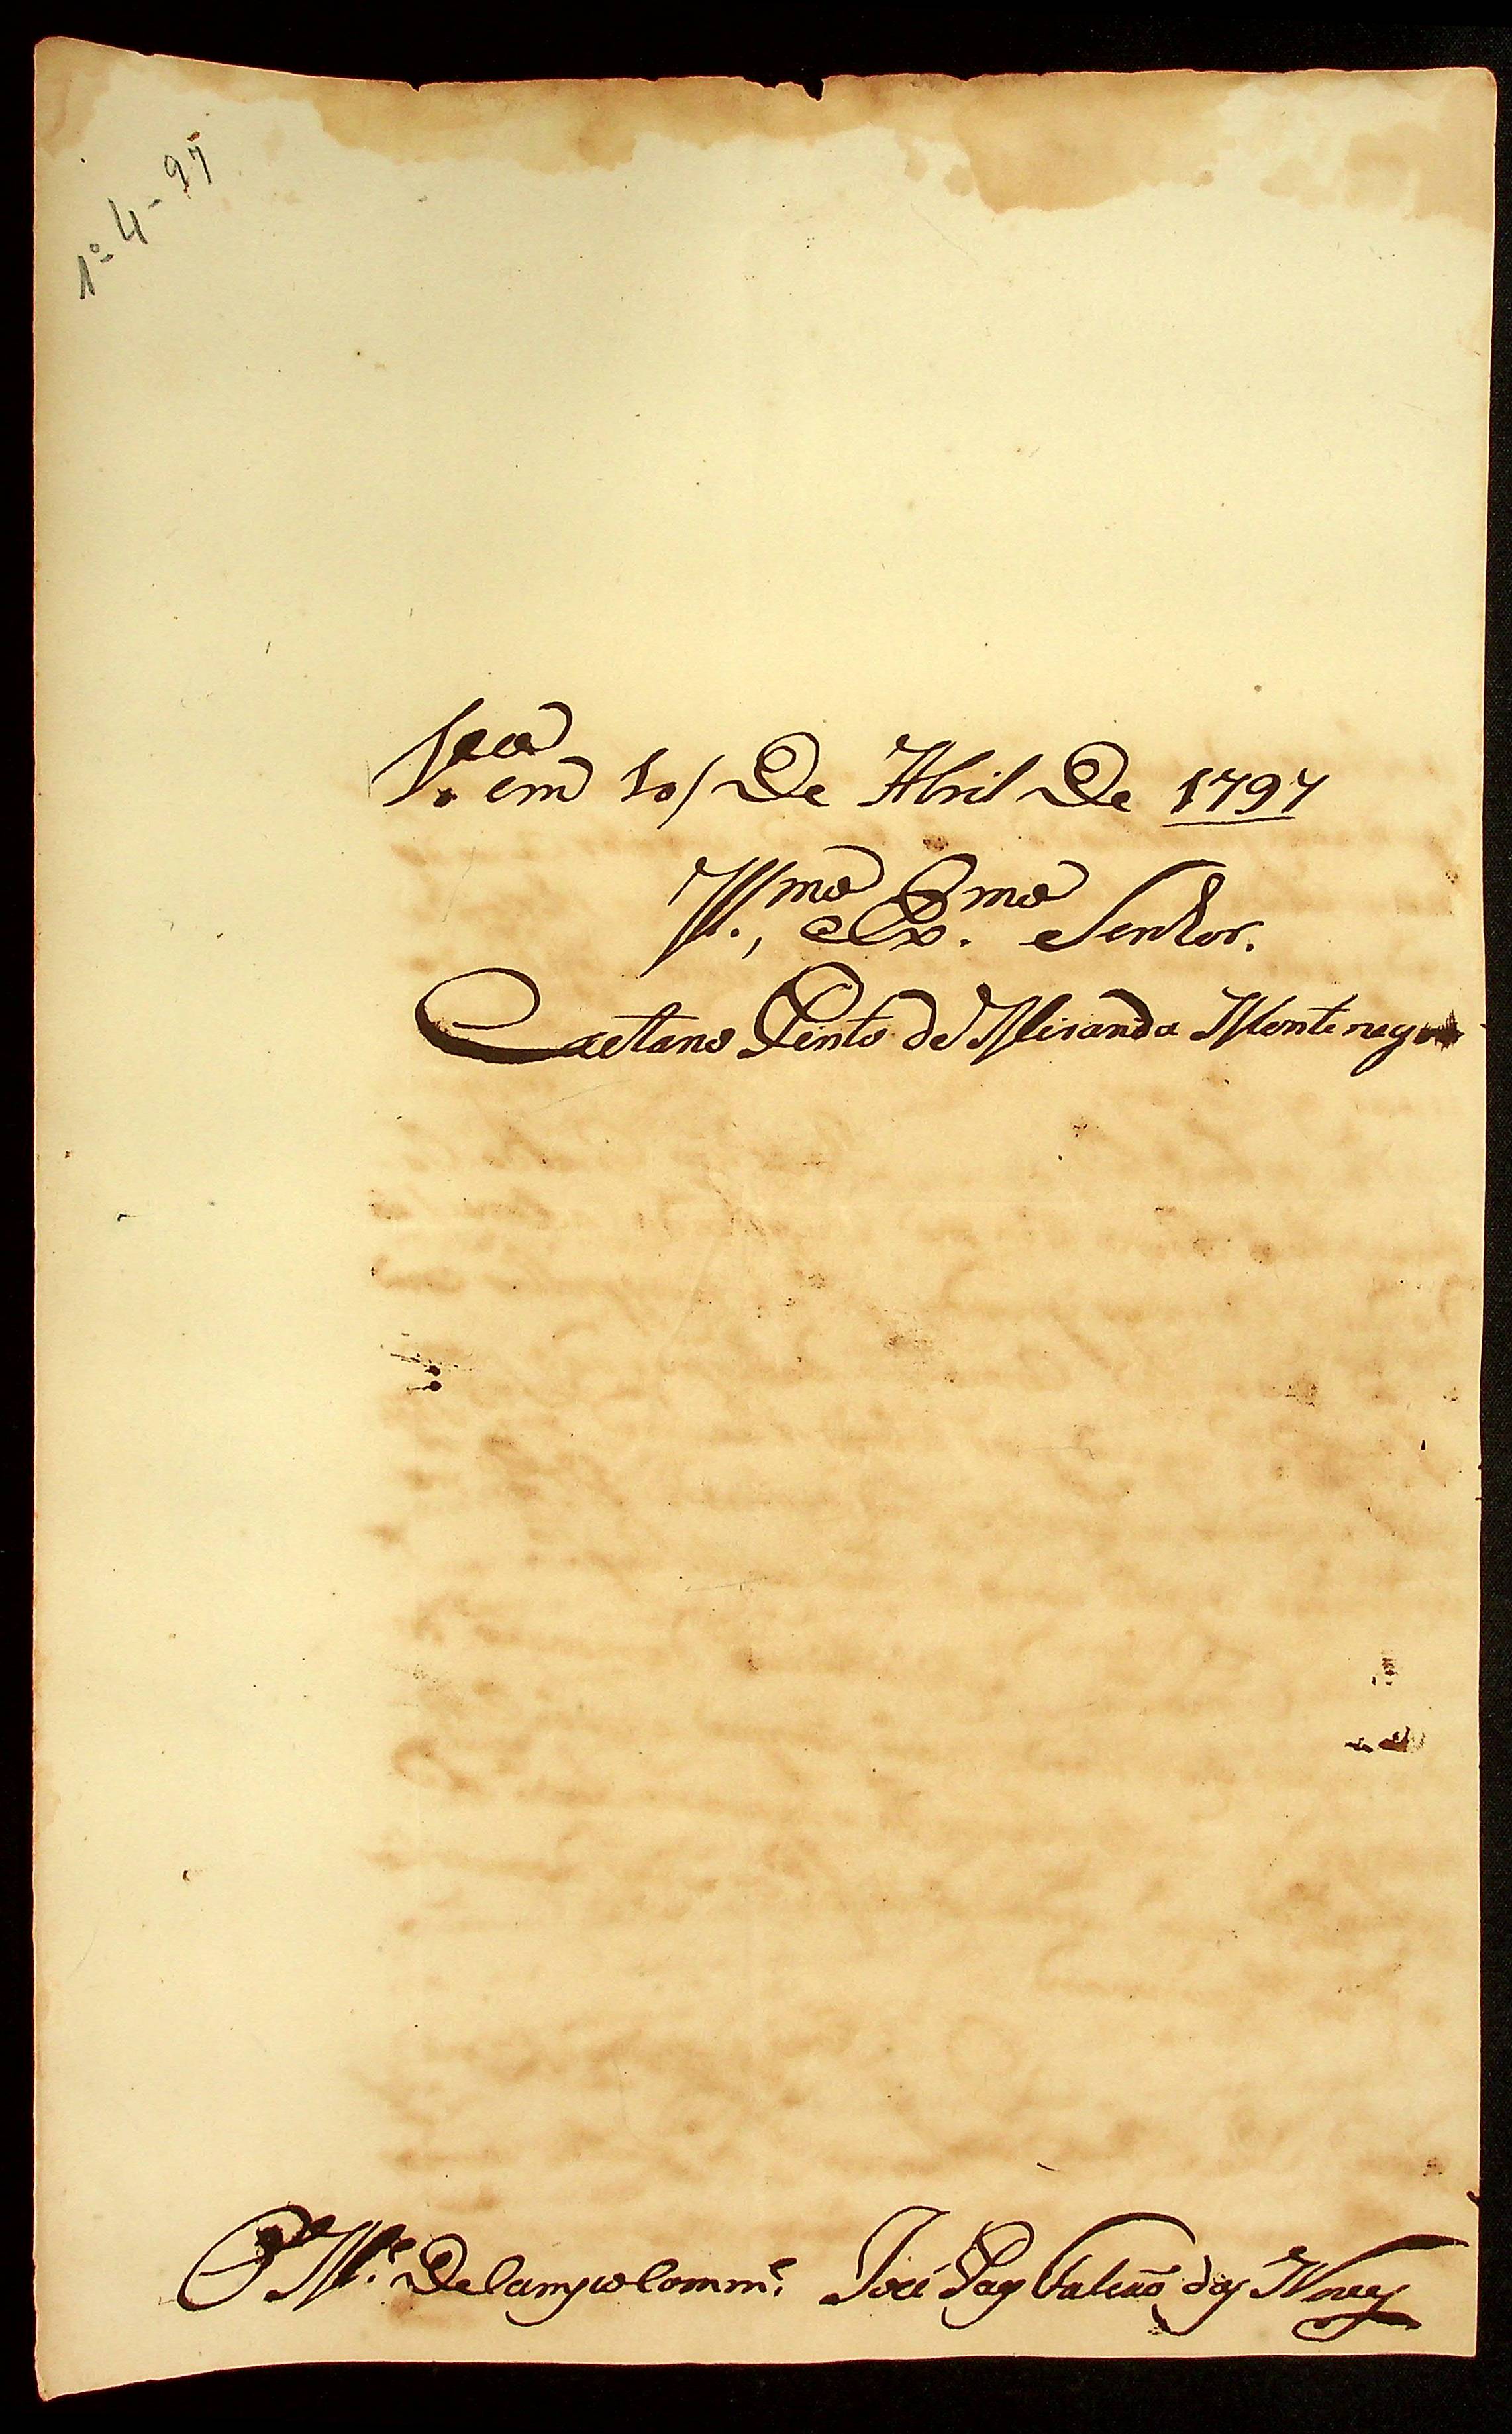 1º 4-97
em 10/ De Abril De 1797
Ill.mo, e Ex.mo Senhor.
Caetano Pinto de Miranda Montenegro
O M.e De Campo Comm.e José Paes Falcaõ das Neves